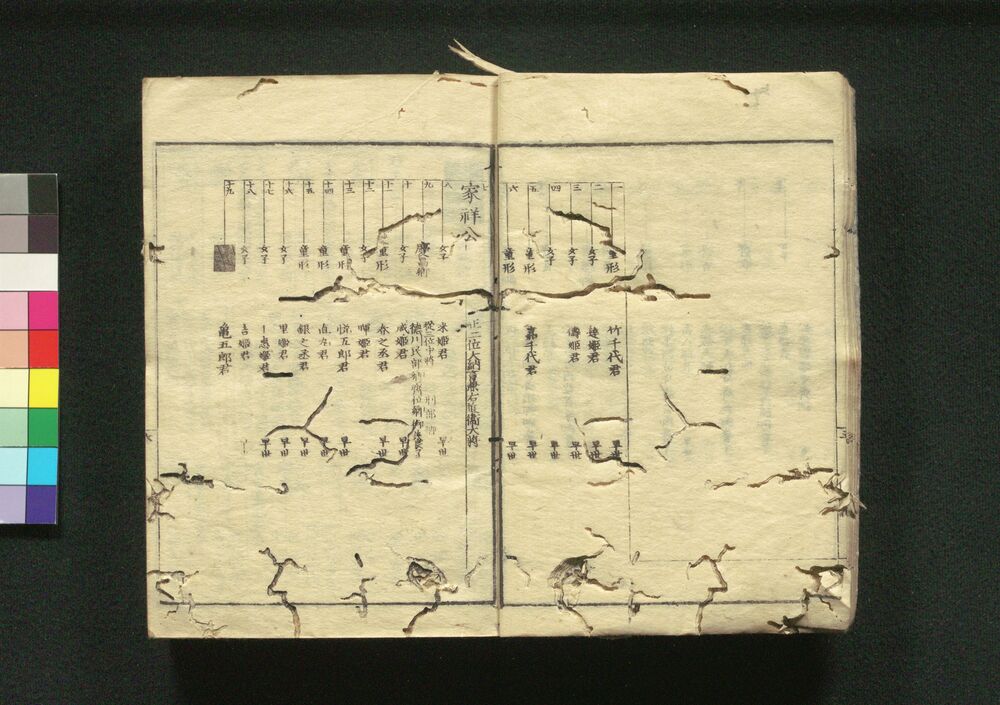 一 童形 竹千代君 早世
二 女子 早世
三 女子 儔姫君 早世
四 女子 早世
五 童形 嘉千代君 早世
六 童形 早世
七 家祥公 正二位大納言兼右近衛大将
八 女子 米姫君 早世
九 慶昌 従三位中将 刑部卿
十 女子 咸姫君 早世
十一 童形 春之丞君 早世
十二 女子 暉姫君
十三 童形 悦五郎君 早世
十四 童形 直丸君 早世
十五 童形 銀之丞君 早世
十六 女子 里姫君 早世
十七 女子 早世
十八 女子 吉姫君
十九 亀五郎君